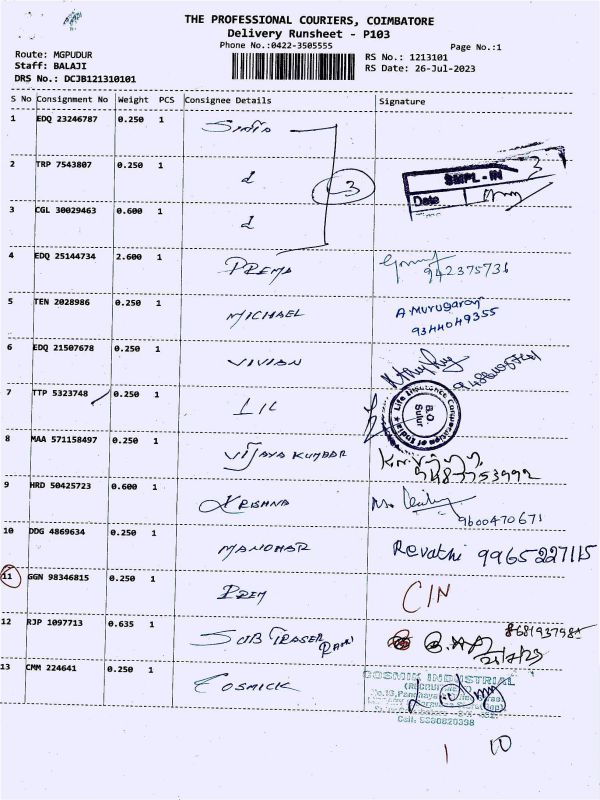 THE PROFESSIONAL COURIERS, COIMBATORE
Delivery Runsheet - P103
Phone No.:0422-3505555
Page No.:1
Route: MGPUDUR
Staff: BALAJI
DRS No.: DCJB121310101
RS No.: 1213101
RS Date: 26-Jul-2023
S No Consignment No Weight PCS Consignee Details Signature
1 EDQ 23246787 0.250 1
2 TRP 7543807 0.250 1 3 3
SMPL - IN
Date
3 CGL 30029463 0.600 1
4 EDQ 25144734 2.600 1 PREMA
942375731
5 TEN 2028986 0.250 1 MICHAEL A Murugaraj
9344049355
6 EDQ 21507678 0.250 1 VIVIAN
7 TTP 5323748 0.250 1 LIL Life Insurance Corporation of India B.O. Sulur
8 MAA 571158497 0.250 1 VIJAYA KUMAR
9487753992
9 HRD 50425723 0.600 1 KRISHNA
9600470671
10 DDG 4869634 0.250 1 MANOHAR Revathi 9965227115
11 GGN 98346815 0.250 1 PREM C/N
12 RJP 1097713 0.635 1
13 CMM 224641 0.250 1 COSMICK COSMIK INDUSTRIAL
Cell:
1 10